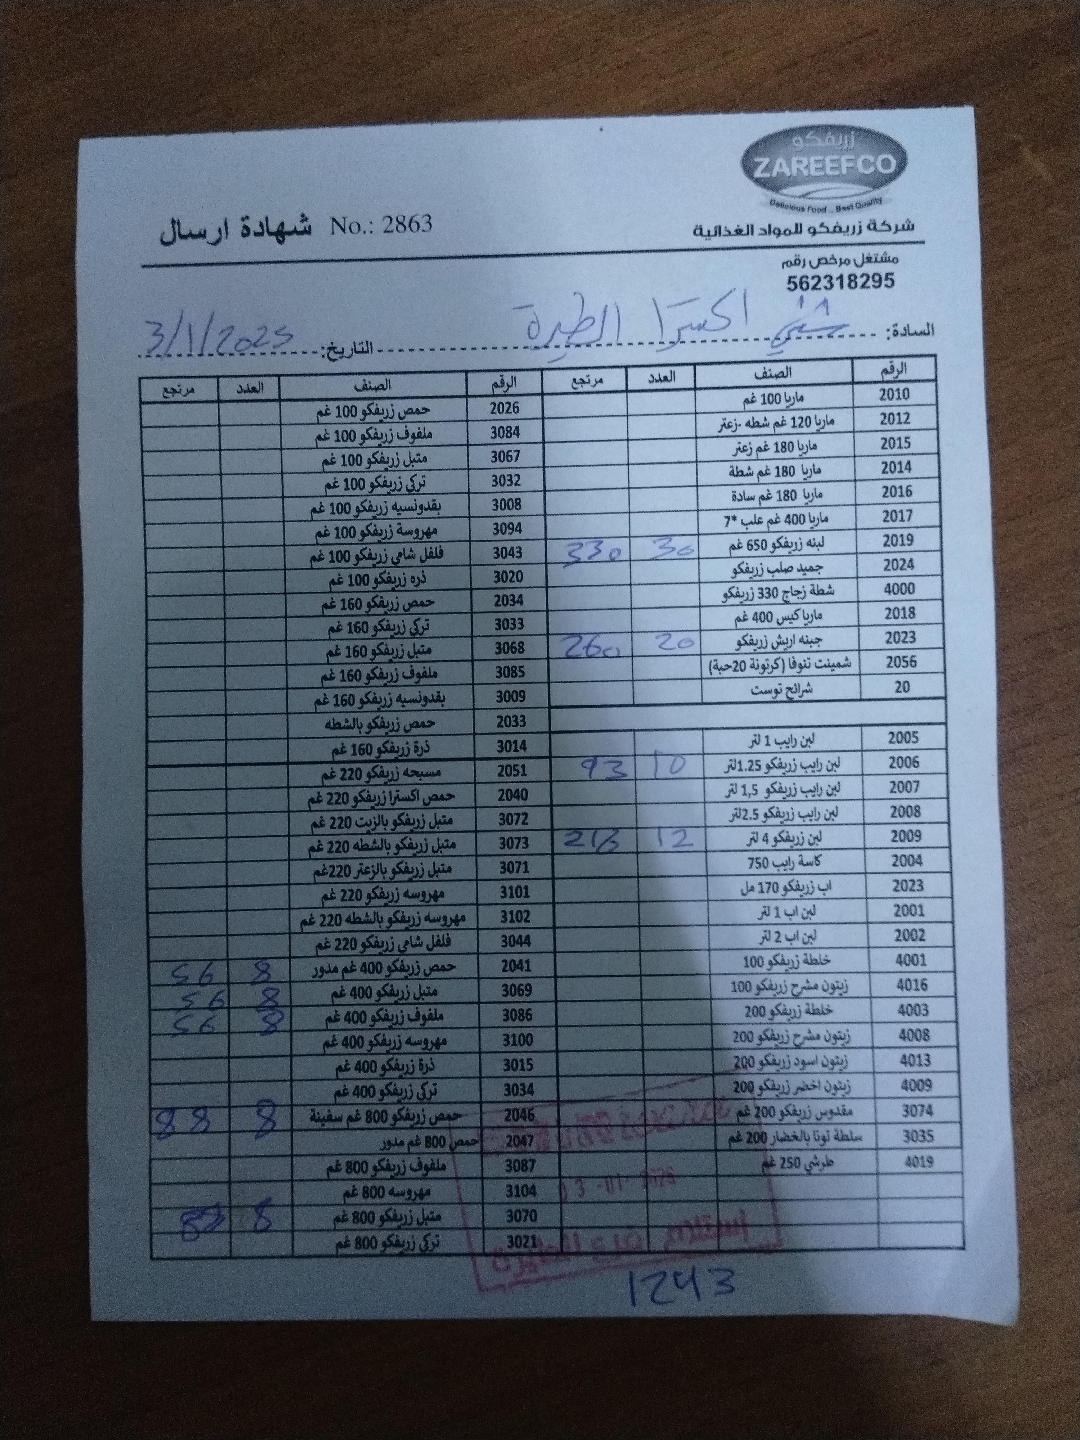 زريفكو
ZAREEFCO
Delicious Food .. Best Quality
شركة زريفكو للمواد الغذائية
شهادة ارسال No.: 2863
مشتغل مرخص رقم
562318295
السادة: اكسترا الطيرة التاريخ: 3/1/2025
الرقم الصنف العدد مرتجع الرقم الصنف العدد مرتجع
2010 ماريا 100 غم 2026 حمص زريفكو 100 غم
2012 ماريا 120 غم شطه -زعتر 3084 ملفوف زريفكو 100 غم
2015 ماريا 180 غم زعتر 3067 متبل زريفكو 100 غم
2014 ماريا 180 غم شطة 3032 تركي زريفكو 100 غم
2016 ماريا 180 غم سادة 3008 بقدونسيه زريفكو 100 غم
2017 ماريا 400 غم علب *7 3094 مهروسة زريفكو 100 غم
2019 لبنه زريفكو 650 غم 30 330 3043 فلفل شامي زريفكو 100 غم
2024 جميد صلب زريفكو 3020 ذره زريفكو 100 غم
4000 شطة زجاج 330 زريفكو 2034 حمص زريفكو 160 غم
2018 ماريا كيس 400 غم 3033 تركي زريفكو 160 غم
2023 جبنه اريش زريفكو 20 260 3068 متبل زريفكو 160 غم
2056 شمينت تنوفا (كرتونة 20حبة) 3085 ملفوف زريفكو 160 غم
20 شرائح توست 3009 بقدونسيه زريفكو 160 غم
2033 حمص زريفكو بالشطه
2005 لبن رايب 1 لتر 3014 ذرة زريفكو 160 غم
2006 لبن رايب زريفكو 1.25لتر 10 93 2051 مسبحه زريفكو 220 غم
2007 لبن رايب زريفكو 1,5 لتر 2040 حمص اكسترا زريفكو 220 غم
2008 لبن رايب زريفكو 2.5لتر 3072 متبل زريفكو بالزيت 220 غم
2009 لبن زريفكو 4 لتر 12 216 3073 متبل زريفكو بالشطه 220 غم
2004 كاسة رايب 750 3071 متبل زريفكو بالزعتر 220غم
2023 اب زريفكو 170 مل 3101 مهروسه زريفكو 220 غم
2001 لبن اب 1 لتر 3102 مهروسه زريفكو بالشطه 220 غم
2002 لبن اب 2 لتر 3044 فلفل شامي زريفكو 220 غم
4001 خلطة زريفكو 100 2041 حمص زريفكو 400 غم مدور 8 56
4016 زيتون مشرح زريفكو 100 3069 متبل زريفكو 400 غم 8 56
4003 خلطة زريفكو 200 3086 ملفوف زريفكو 400 غم 8 56
4008 زيتون مشرح زريفكو 200 3100 مهروسه زريفكو 400 غم
4013 زيتون اسود زريفكو 200 3015 ذرة زريفكو 400 غم
4009 زيتون اخضر زريفكو 200 3034 تركي زريفكو 400 غم
3074 مقدوس زريفكو 200 غم 2046 حمص زريفكو 800 غم سفينة 8 88
3035 سلطة تونا بالخضار 200 غم 2047 حمص 800 غم مدور
4019 طرشي 250 غم 3087 ملفوف زريفكو 800 غم
3104 مهروسه 800 غم
3070 متبل زريفكو 800 غم 8
3021 تركي زريفكو 800 غم
1243